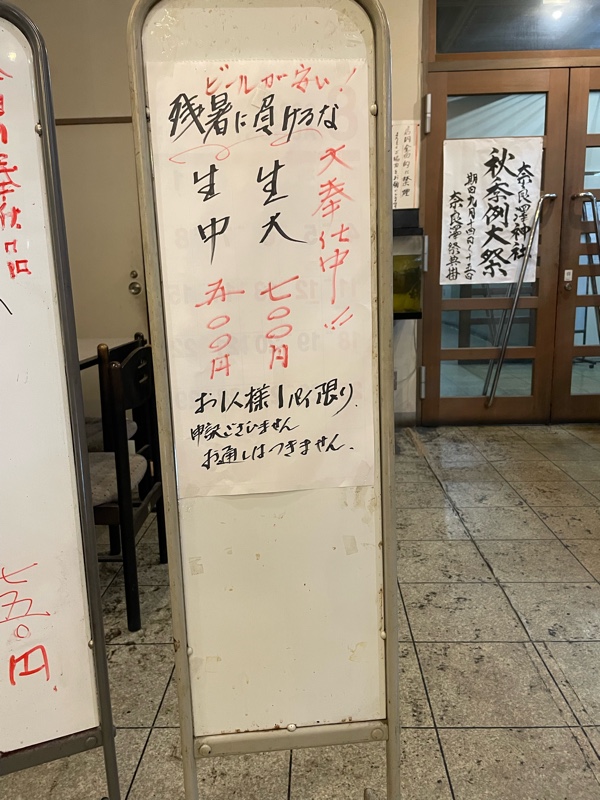 ビールが安い!
残暑に負けるな
大奉仕中!!
生大 七〇〇円
生中 五〇〇円
お1人様1パイ限り
申訳ございません
お通しはつきません。
七五〇円
奈良澤神社
秋季例大祭
期日九月十四日〜十五日
奈良澤祭典掛